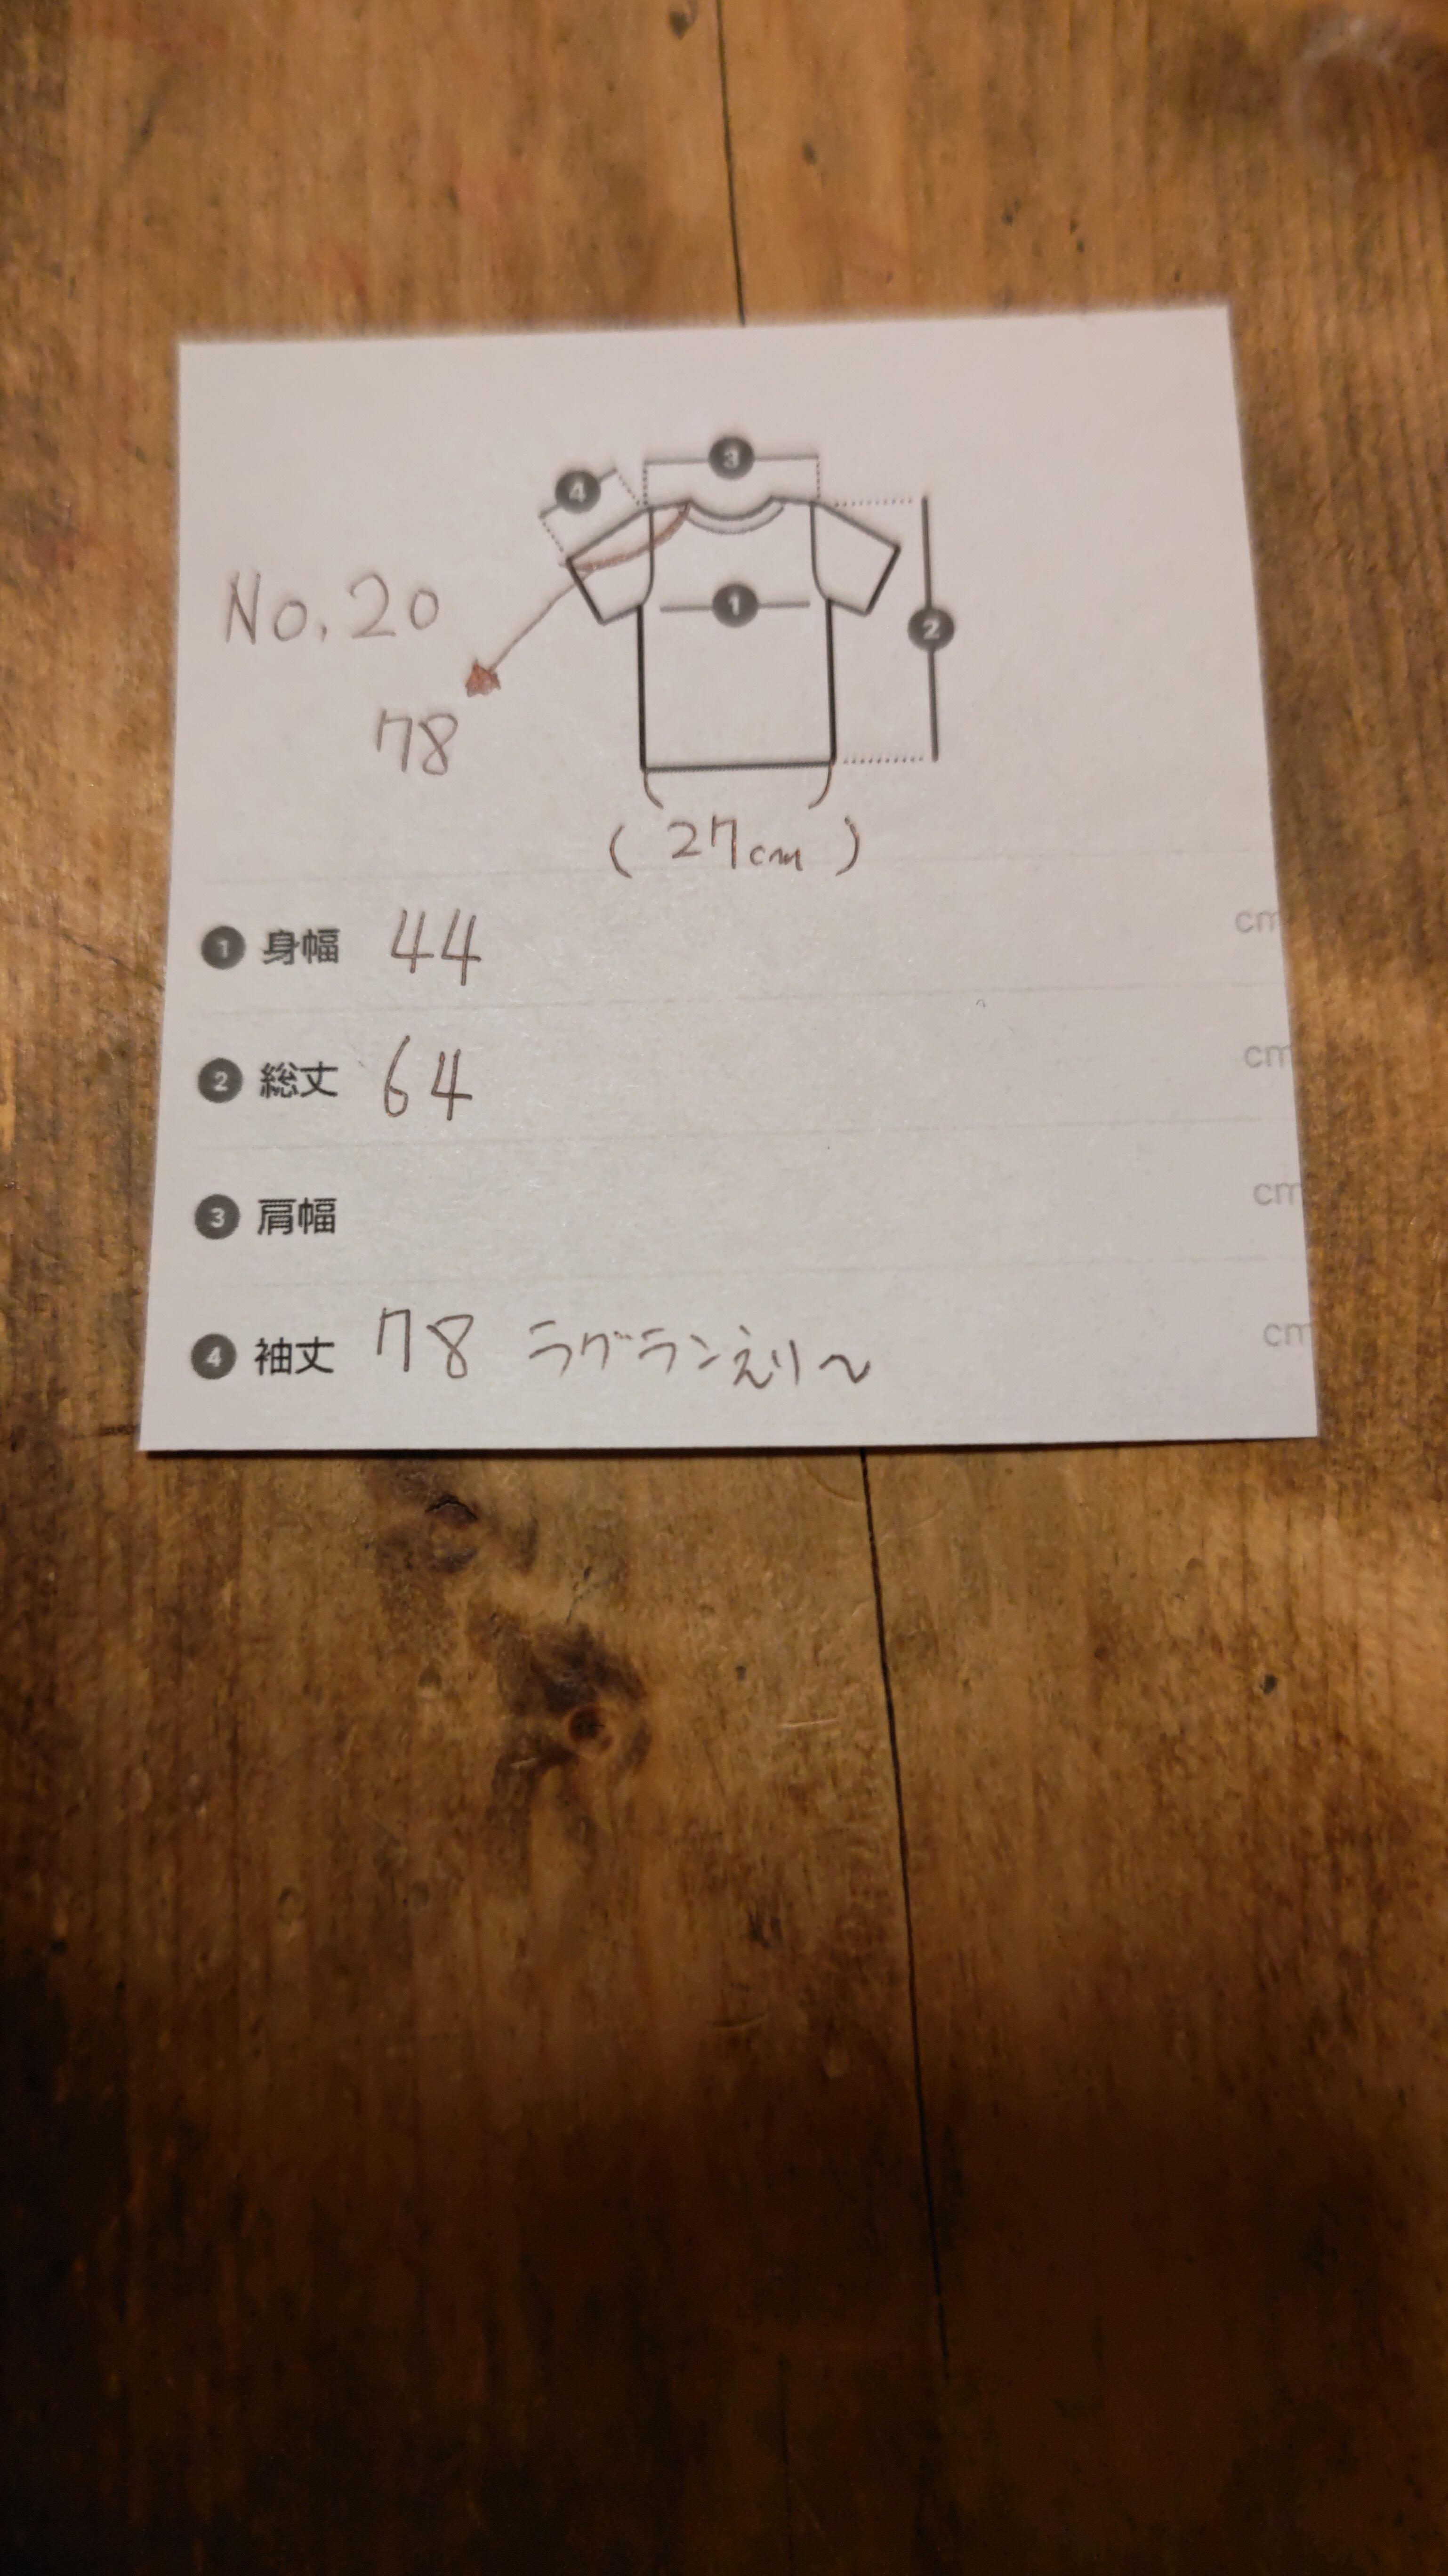 3
4
1
2
No.20
78
(27cm)
1 身幅 44 cm
2 総丈 64 cm
3 肩幅 cm
4 袖丈 78 ラグランえり〜 cm